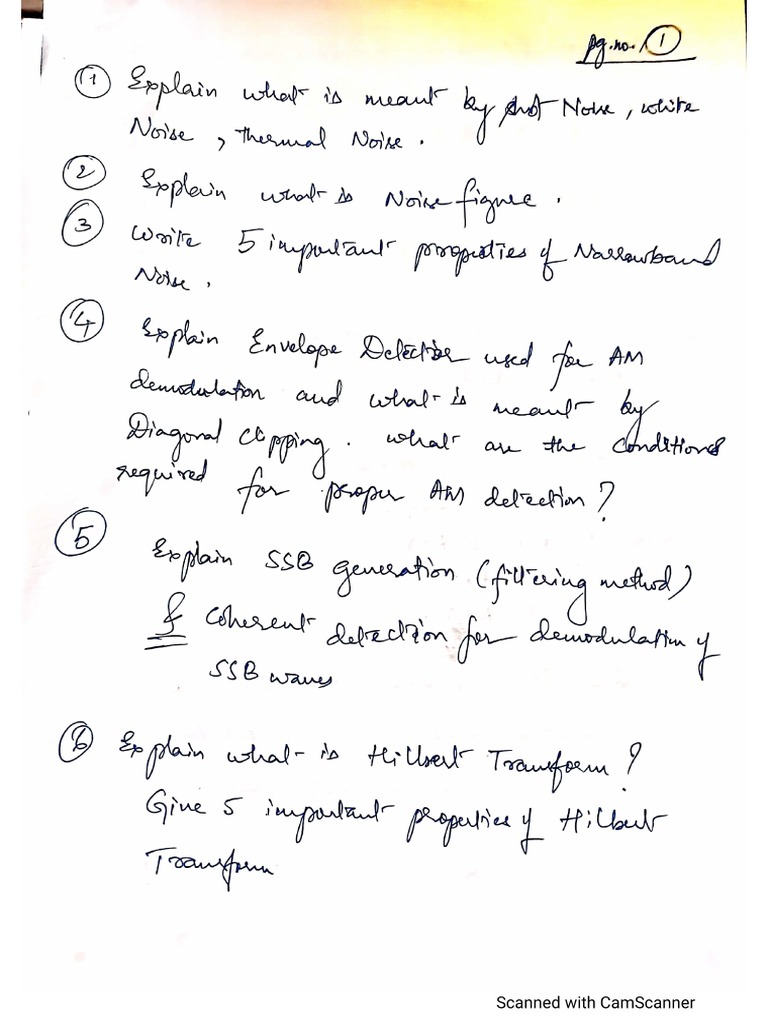 pg.no. 1
1 Explain what is meant by shot Noise, white
Noise, thermal Noise.
2 Explain what is Noise figure.
3 Write 5 important properties of Narrowband
Noise.
4 Explain Envelope Detector used for AM
demodulation and what is meant by
Diagonal clipping. What are the conditions
required for proper AM detection?
5 Explain SSB generation (filtering method)
& Coherent detection for demodulation of
SSB waves
6 Explain what is Hilbert Transform?
Give 5 important properties of Hilbert
Transform
Scanned with CamScanner